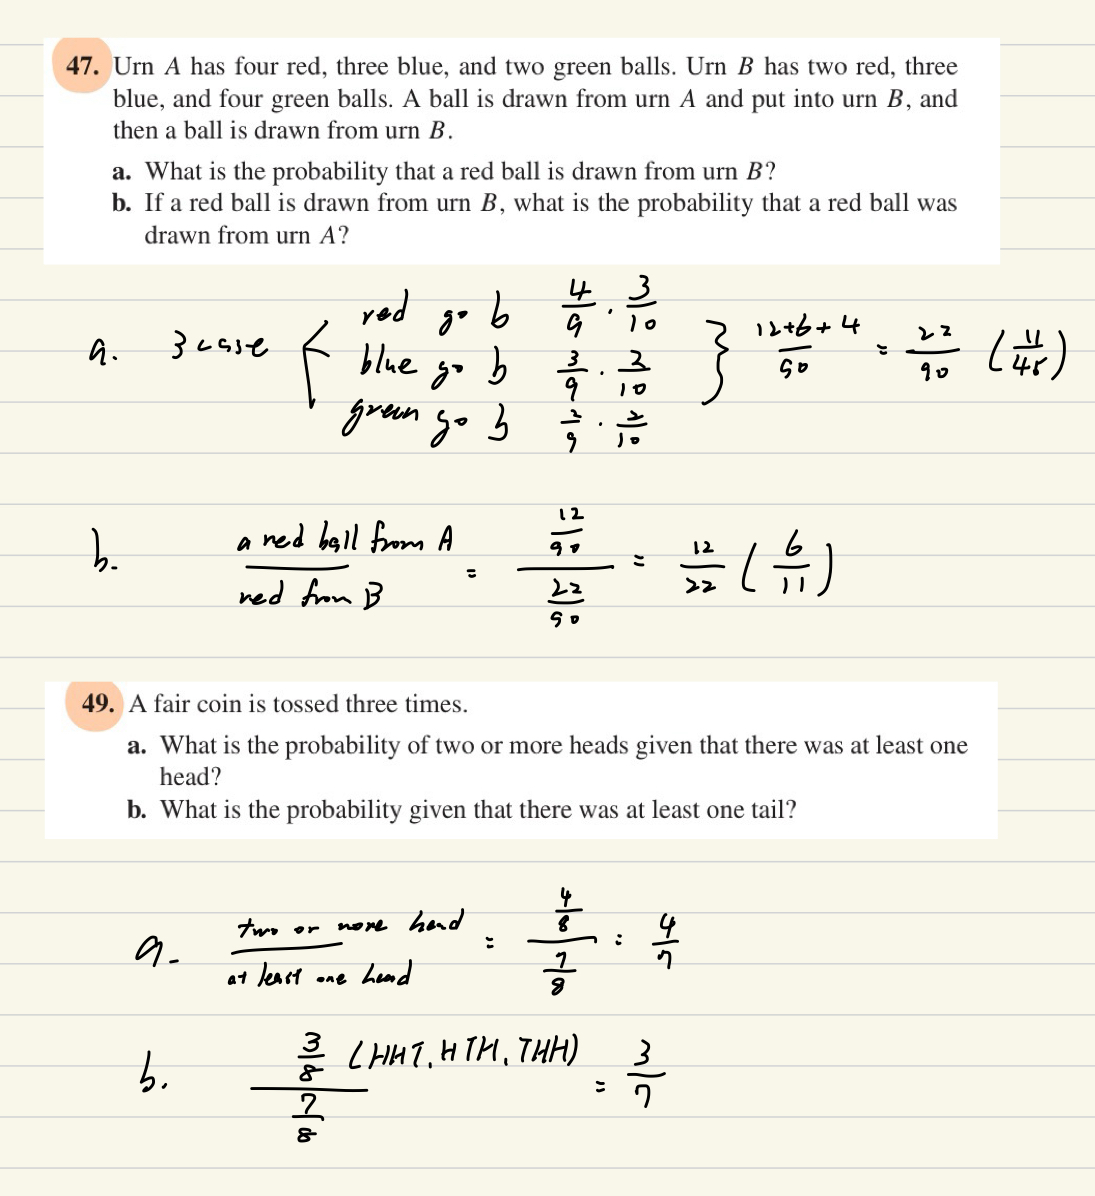 47. Urn A has four red, three blue, and two green balls. Urn B has two red, three
blue, and four green balls. A ball is drawn from urn A and put into urn B, and
then a ball is drawn from urn B.
a. What is the probability that a red ball is drawn from urn B?
b. If a red ball is drawn from urn B, what is the probability that a red ball was
drawn from urn A?
a. 3 case { red go b 4/9 · 3/10
blue go b 3/9 · 2/10 } 12+6+4/90 = 22/90 (11/45)
green go b 2/9 · 2/10
b. a red ball from A / red from B = 12/90 / 22/90 = 12/22 (6/11)
49. A fair coin is tossed three times.
a. What is the probability of two or more heads given that there was at least one
head?
b. What is the probability given that there was at least one tail?
a. two or more head / at least one head = 4/8 / 7/8 = 4/7
b. 3/8 (HHT, HTH, THH) / 7/8 = 3/7